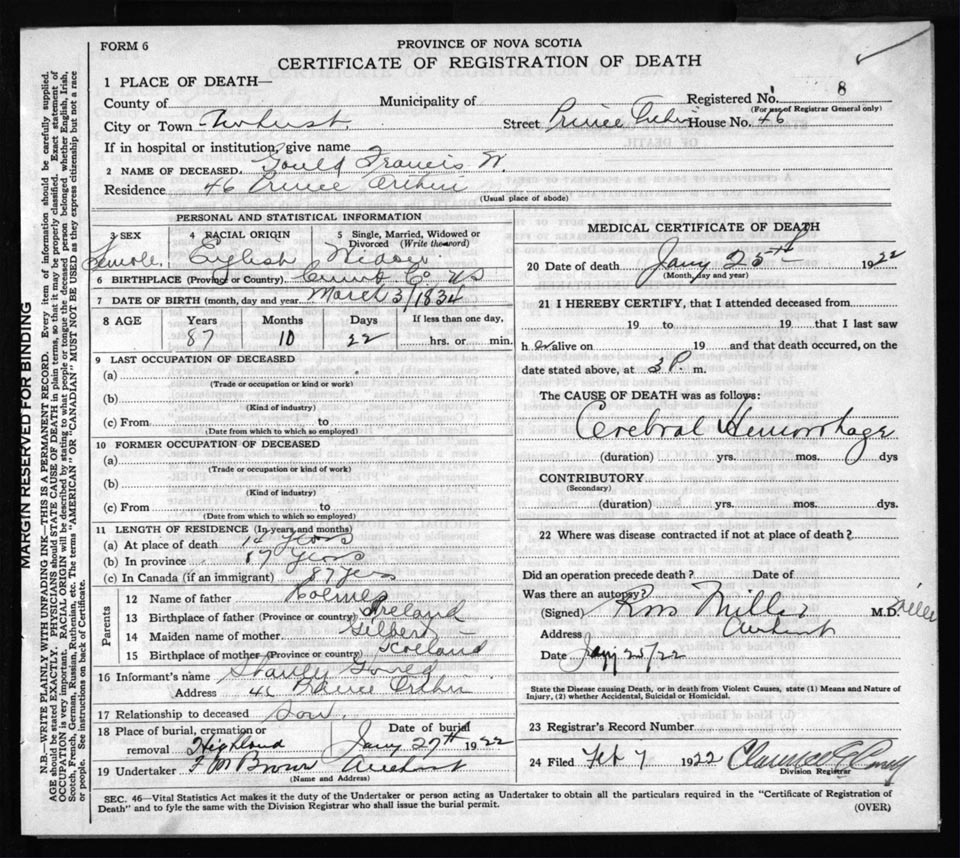 FORM 6
PROVINCE OF NOVA SCOTIA
CERTIFICATE OF REGISTRATION OF DEATH
1 PLACE OF DEATH—
County of Municipality of Registered No. 8
(For use of Registrar General only)
City or Town Amherst. Street Prince Arthur House No. 46
If in hospital or institution, give name
2 NAME OF DECEASED. Gould Francis W.
Residence 46 Prince Arthur
(Usual place of abode)
PERSONAL AND STATISTICAL INFORMATION
3 SEX 4 RACIAL ORIGIN 5 Single, Married, Widowed or
Divorced (Write the word)
Female. English Widow.
6 BIRTHPLACE (Province or Country) Co. NS
7 DATE OF BIRTH (month, day and year) March 3/1834
8 AGE Years Months Days If less than one day,
87 10 22 hrs. or min.
9 LAST OCCUPATION OF DECEASED
(a)
(Trade or occupation or kind of work)
(b)
(Kind of industry)
(c) From to
(Date from which to which so employed)
10 FORMER OCCUPATION OF DECEASED
(a)
(Trade or occupation or kind of work)
(b)
(Kind of industry)
(c) From to
(Date from which to which so employed)
11 LENGTH OF RESIDENCE (In years and months)
(a) At place of death years
(b) In province 87 years
(c) In Canada (if an immigrant) 87 yers
Parents
12 Name of father Holmes
13 Birthplace of father (Province or country) Ireland
14 Maiden name of mother Gilbert
15 Birthplace of mother (Province or country) Scotland
16 Informant's name Stanley Gould
Address 46 Prince Arthur
17 Relationship to deceased Son.
18 Place of burial, cremation or Date of burial
removal Highland Jany 27th 1922
19 Undertaker F M Brown Amherst
(Name and Address)
MEDICAL CERTIFICATE OF DEATH
20 Date of death Jany 25th 1922
(Month, day and year)
21 I HEREBY CERTIFY, that I attended deceased from
19 to 19 that I last saw
h er alive on 19 and that death occurred, on the
date stated above, at 3 P. m.
The CAUSE OF DEATH was as follows:
Cerebral Hemorrhage
(duration) yrs. mos. dys
CONTRIBUTORY
(Secondary)
(duration) yrs. mos. dys
22 Where was disease contracted if not at place of death?
Did an operation precede death? Date of
Was there an autopsy?
(Signed) Ross Millar M.D.
Address Amherst
Date Jany 25/22
State the Disease causing Death, or in death from Violent Causes, state (1) Means and Nature of
Injury, (2) whether Accidental, Suicidal or Homicidal.
23 Registrar's Record Number
24 Filed Feb 7 1922
Division Registrar
SEC. 46—Vital Statistics Act makes it the duty of the Undertaker or person acting as Undertaker to obtain all the particulars required in the "Certificate of Registration of
Death" and to fyle the same with the Division Registrar who shall issue the burial permit.
(OVER)
MARGIN RESERVED FOR BINDING
N.B.—WRITE PLAINLY WITH UNFADING INK—THIS IS A PERMANENT RECORD. Every item of information should be carefully supplied.
AGE should be stated EXACTLY. PHYSICIANS should STATE CAUSE OF DEATH in plain terms, so that it may be properly classified. Exact statement of
OCCUPATION is very important. RACIAL ORIGIN will be described by stating to what people or tongue the deceased person belonged whether English, Irish,
Scotch, French, German, Russian, Ruthenian, etc. The terms "AMERICAN" OR "CANADIAN" MUST NOT BE USED as they express citizenship but not a race
or people. See instructions on back of Certificate.